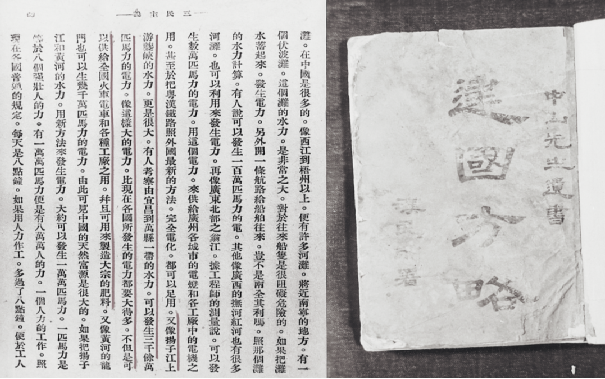 三民主義
灘。在中國是很多的。像西江到梧州以上。便有許多河灘。將近南寧的地方。有一
個伏波灘。這個灘的水力。是非常之大。對於往來船隻是很阻礙危險的。如果把灘
水蓄起來。發生電力。另外開一條航路給船舶往來。豈不是兩全其利嗎。照那個灘
的水力計算。有人說可以發生一百萬匹馬力的電。其他像廣西的撫河紅河也有很多
河灘。也可以利用來發生電力。再像廣東北部之翁江。據工程師的測量說。可以發
生數萬匹馬力的電力。用這個電力。來供給廣州各城市的電燈和各工廠中的電機之
用。甚至於把粵漢鐵路照外國最新的方法。完全電化。都可以足用。又像揚子江上
游夔峽的水力。更是很大。有人考察由宜昌到萬縣一帶的水力。可以發生三千餘萬
匹馬力的電力。像這樣大的電力。比現在各國所發生的電力都要大得多。不但是可
以供給全國火車電車和各種工廠之用。并且可用來製造大宗的肥料。又像黃河的龍
門也可以生幾千萬匹馬力的電力。由此可見中國的天然富源是很大的。如果把揚子
江和黃河的水力。用新方法來發生電力。大約可以發生一萬萬匹馬力。一匹馬力是
等於八個强壯人的力。有一萬萬匹馬力便是有八萬萬人的力。一個人力的工作。照
現在各國普通的規定。每天是八點鐘。如果用人力作工。多過了八點鐘。便於工人
中山先生遺書
建國方略
著